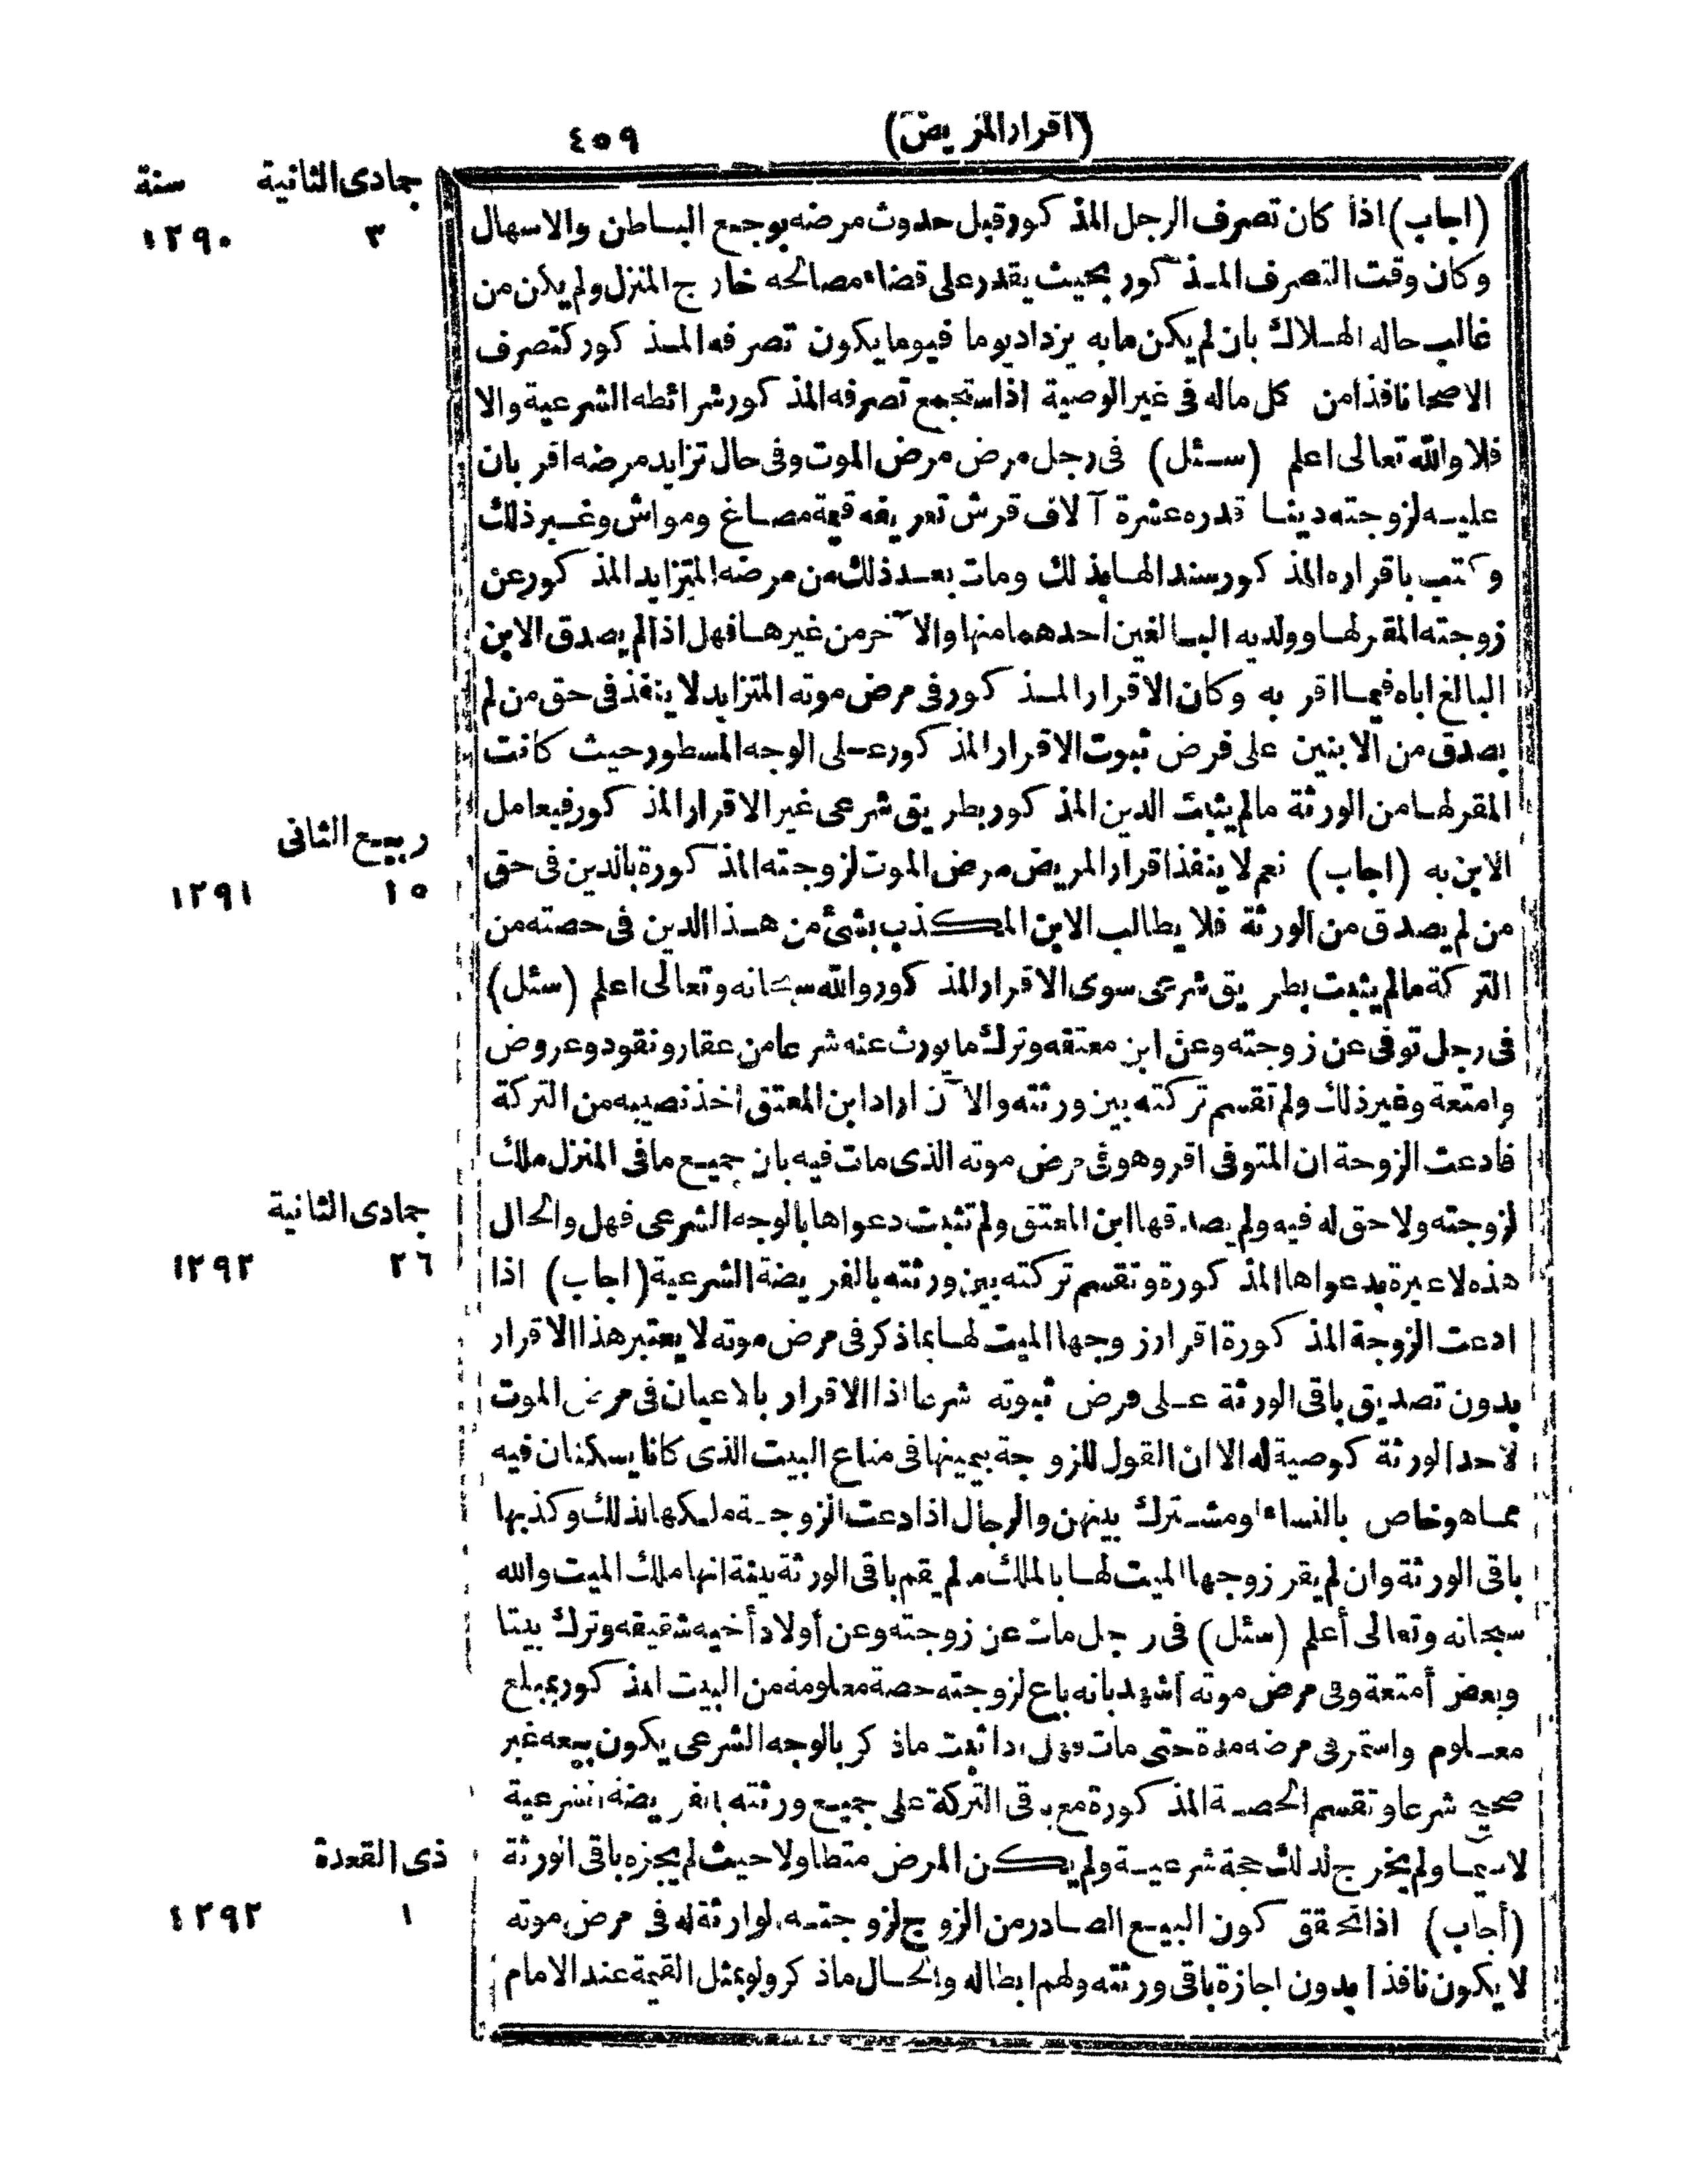 (اقرار المريض)
٤٥٩
جمادى الثانية سنة
٣ ١٢٩٠
(اجاب) اذا كان تصرف الرجل المذكور قبل حدوث مرضه بوجع الباطن والاسهال
وكان وقت التصرف المذكور بحيث يقدر على قضاء مصالحه خارج المنزل ولم يكن من
غالب حاله الهلاك بان لم يكن مابه يزداد يوما فيوما يكون تصرفه المذكور كتصرف
الاصحا نافذا من كل ماله فى غير الوصية اذا ستجمع تصرفه المذكور شرائطه الشرعية والا
فلا والله تعالى اعلم (سئل) فى رجل مرض مرض الموت وفى حال تزايد مرضه اقر بان
عليه لزوجته دينا قدره عشرة آلاف قرش تعريفه قيمة مصاغ ومواش وغير ذلك
وكتب باقراره المذكور سند الها بذلك ومات بعد ذلك من مرضه المتزايد المذكور عن
زوجته المقر لها وولديه البالغين احدهما منها والآخر من غيرها فهل اذا لم يصدق الابن
البالغ اباه فيما اقر به وكان الاقرار المذكور فى مرض موته المتزايد لا ينفذ فى حق من لم
يصدق من الابنين على فرض ثبوت الاقرار المذكور على الوجه المسطور حيث كانت
المقر لها من الورثة مالم يثبت الدين المذكور بطريق شرعى غير الاقرار المذكور فيعامل
الابن به (اجاب) نعم لا ينفذ اقرار المريض مرض الموت لزوجته المذكورة بالدين فى حق
ربيع الثانى
١٥ ١٢٩١
من لم يصدق من الورثة فلا يطالب الابن المكذب بشئ من هذا الدين فى حصته من
التركة مالم يثبت بطريق شرعى سوى الاقرار المذكور والله سبحانه وتعالى اعلم (سئل)
فى رجل توفى عن زوجته وعن ابن معتقه وترك ما يورث عنه شرعا من عقار ونقود وعروض
وامتعة وغير ذلك ولم تقسم تركته بين ورثته والآن اراد ابن المعتق اخذ نصيبه من التركة
فادعت الزوجة ان المتوفى اقر وهو فى مرض موته الذى مات فيه بان جميع مافى المنزل ملك
لزوجته ولا حق له فيه ولم يصدقها ابن المعتق ولم تثبت دعواها بالوجه الشرعى فهل والحال
جمادى الثانية
٢٦ ١٢٩٢
هذه لا عبرة بدعواها المذكورة وتقسم تركته بين ورثته بالفريضة الشرعية (اجاب) اذا
ادعت الزوجة المذكورة اقرار زوجها الميت لها بماذكر فى مرض موته لا يعتبر هذا الاقرار
بدون تصديق باقى الورثة على فرض ثبوته شرعا اذا الاقرار بالاعيان فى مرض الموت
لاحد الورثة كوصية له الا ان القول للزوجة بيمينها فى متاع البيت الذى كانا يسكنان فيه
مما هو خاص بالنساء او مشترك بينهن والرجال اذا دعت الزوجة ملكها لذلك وكذبها
باقى الورثة وان لم يقر زوجها الميت لها بالملك مالم يقم باقى الورثة بينة انها ملك الميت والله
سبحانه وتعالى أعلم (سئل) فى رجل مات عن زوجته وعن أولاد أخيه شقيقه وترك بيتا
وبعض أمتعة وفى مرض موته أشهد بانه باع لزوجته حصة معلومة من البيت المذكور بمبلغ
معلوم واستمر فى مرضه مدة حتى مات فهل اذا ثبت ماذكر بالوجه الشرعى يكون بيعه غير
صحيح شرعا وتقسم الحصة المذكورة مع باقى التركة على جميع ورثته بالفريضة الشرعية
لاسيما ولم يخرج لذلك حجة شرعية ولم يكن المرض متطاولا حيث لم يجزه باقى الورثة
ذى القعدة
١ ١٢٩٢
(أجاب) اذا تحقق كون البيع الصادر من الزوج لزوجته الوارثة له فى مرض موته
لا يكون نافذا بدون اجازة باقى ورثته ولهم ابطاله والحال ماذكر ولو بمثل القيمة عند الامام